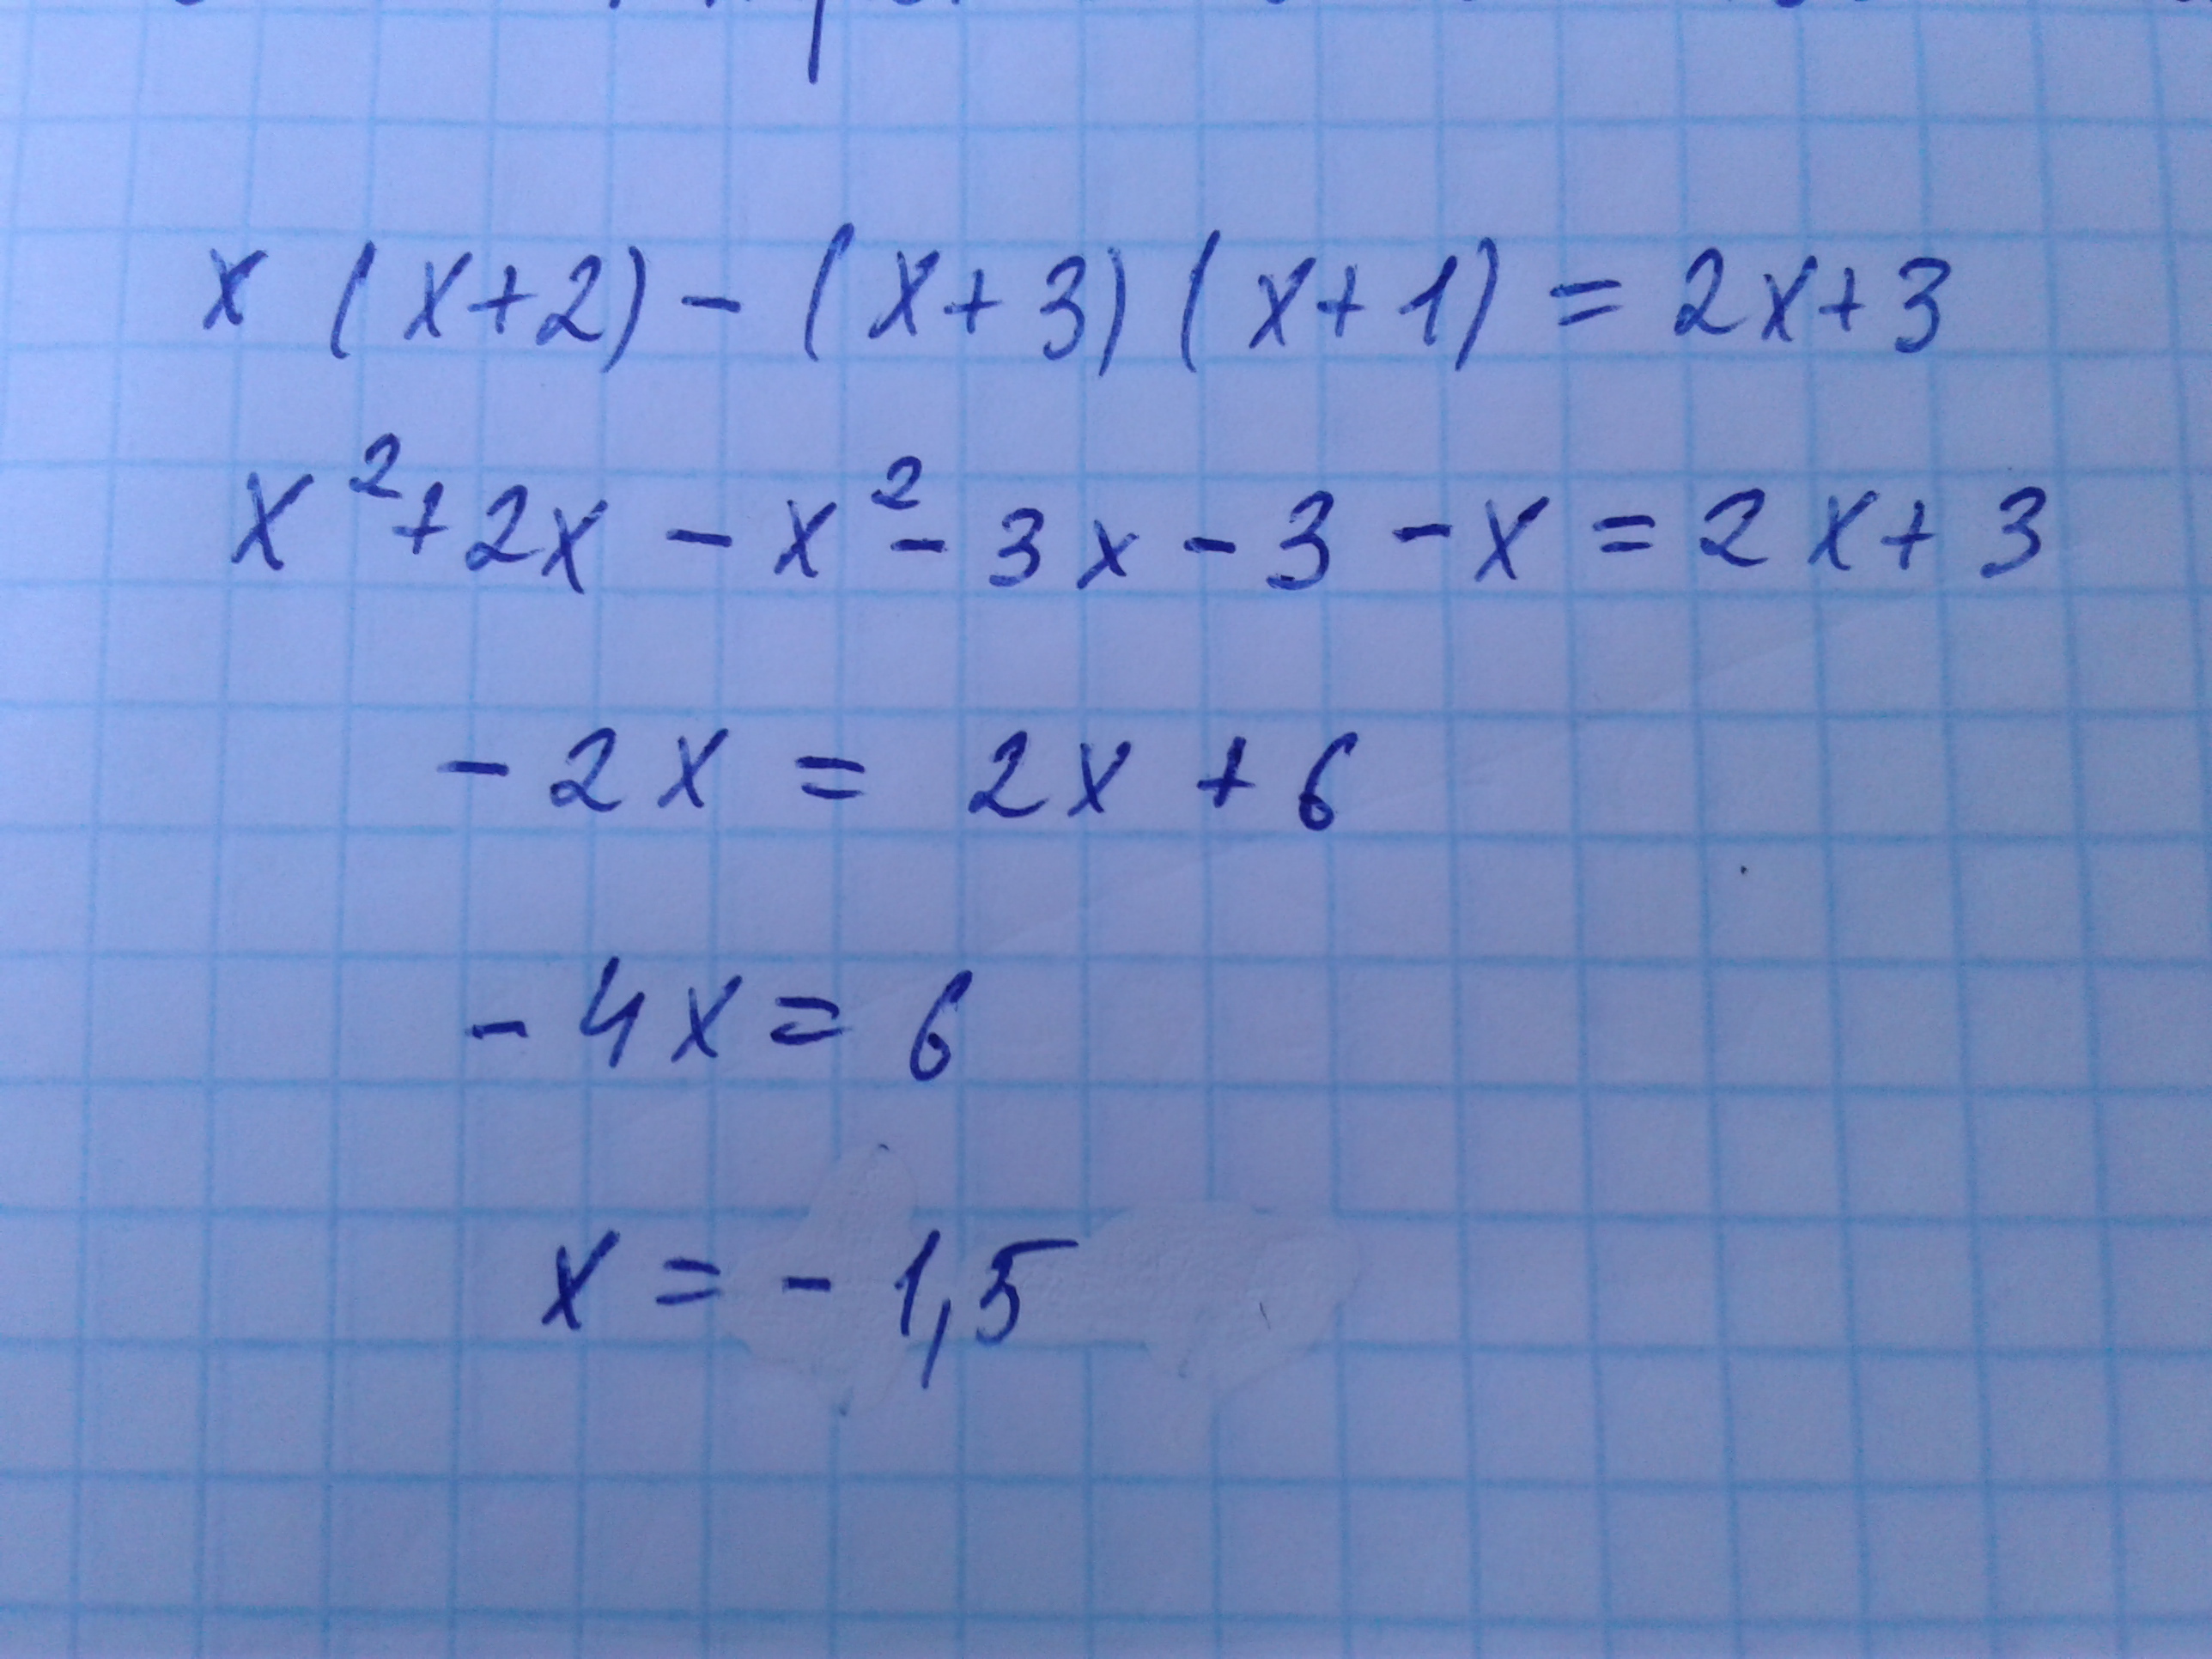 x (x+2) - (x+3) (x+1) = 2x+3
x²+2x - x² - 3x - 3 - x = 2x+3
-2x = 2x + 6
-4x = 6
x = -1,5